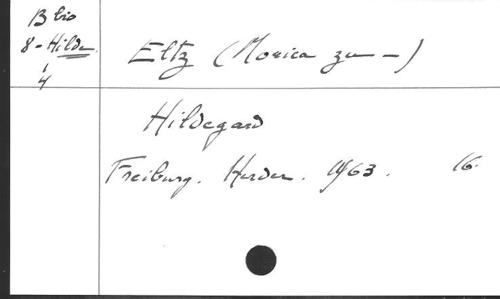 B bis
8-Hilde.
1
4
Eltz (Monica zu -)
Hildegard
Freiburg. Herder. 1963. 16.